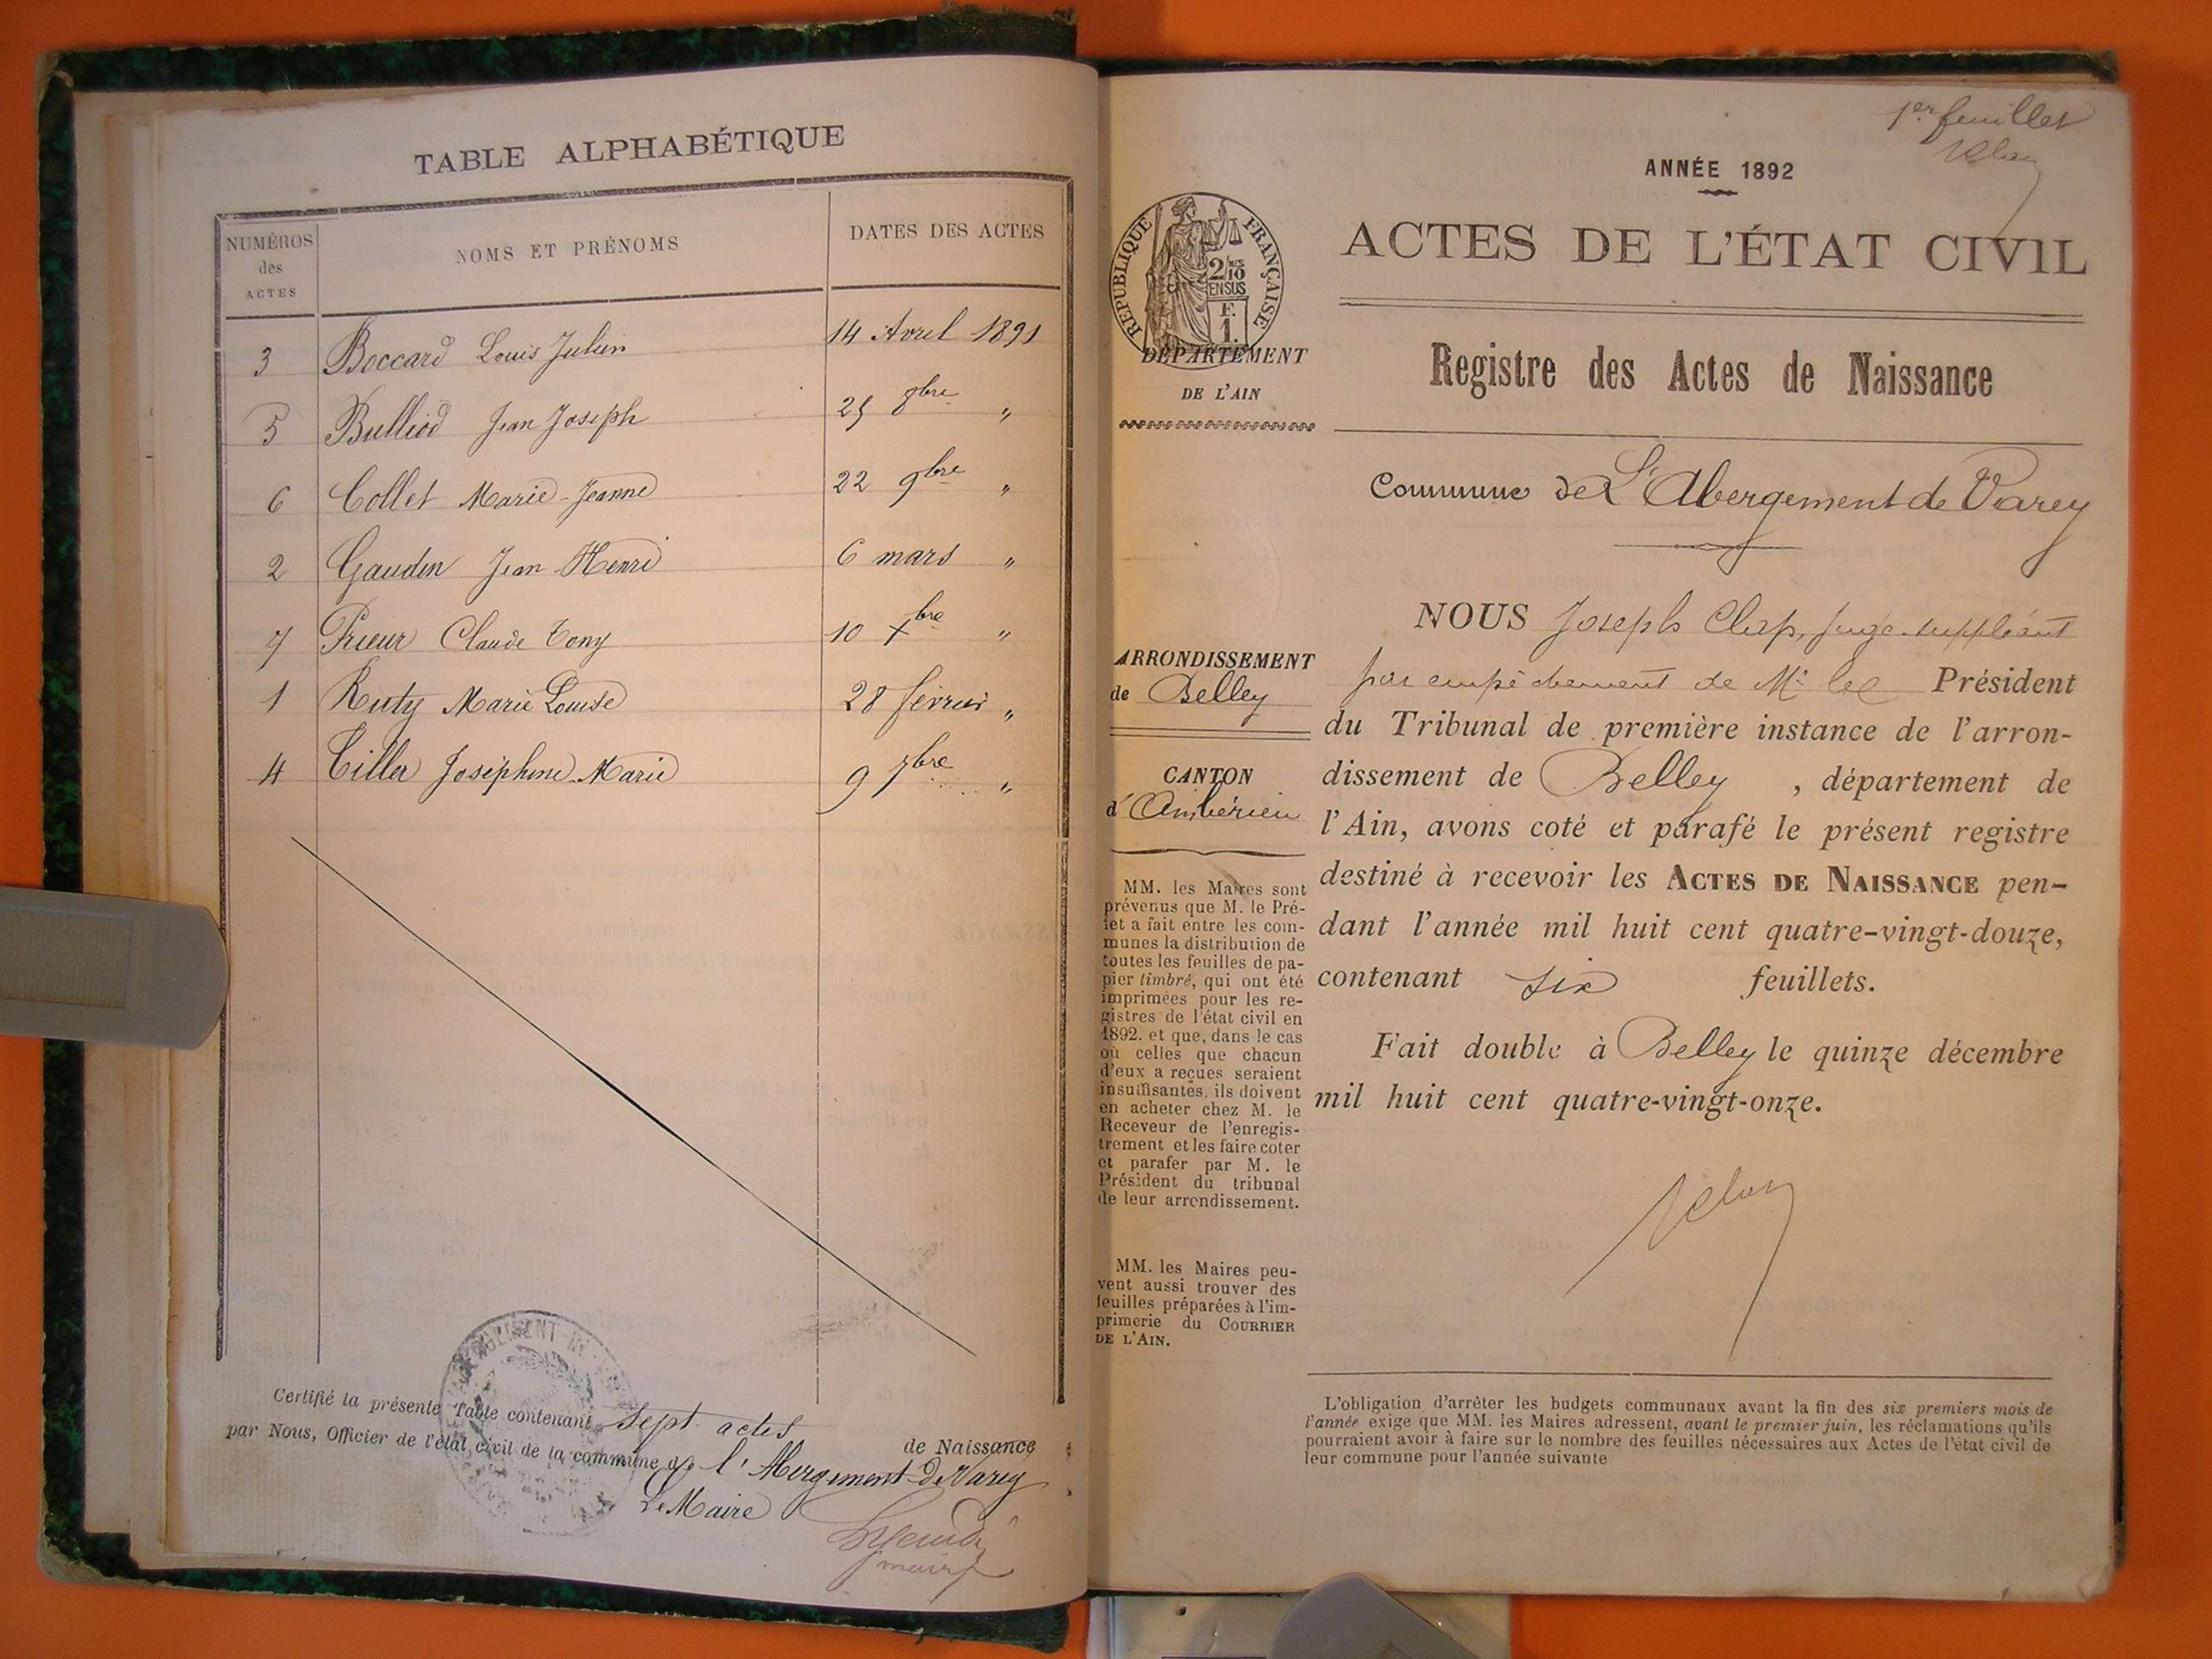 TABLE ALPHABÉTIQUE
NUMÉROS des ACTES
NOMS ET PRÉNOMS
DATES DES ACTES
3 Boccard Louis Julien 14 Avril 1891
5 Bulliod Jean Joseph 25 8bre "
6 Collet Marie-Jeanne 22 9bre "
2 Gaudin Jean-Henri 6 mars "
7 Prieur Claude Tony 10 Xbre "
1 Ruty Marie Louise 28 février "
4 Tiller Joséphine Marie 9 7bre "
Certifié la présente Table contenant sept actes de Naissance
par Nous, Officier de l'état civil de la commune de l'Abergement-de Varey
Le Maire
maire
1er feuillet
ANNÉE 1892
ACTES DE L'ÉTAT CIVIL
RÉPUBLIQUE FRANÇAISE
2/10
EN SUS
F.
1.
DÉPARTEMENT
DE L'AIN
Registre des Actes de Naissance
Commune de L'Abergement de Varey
ARRONDISSEMENT
de Belley
CANTON
d'Ambérieu
NOUS Joseph Clap, juge-suppléant
par empêchement de Mr le Président
du Tribunal de première instance de l'arron-
dissement de Belley, département de
l'Ain, avons coté et parafé le présent registre
destiné à recevoir les ACTES DE NAISSANCE pen-
dant l'année mil huit cent quatre-vingt-douze,
contenant six feuillets.
Fait double à Belley le quinze décembre
mil huit cent quatre-vingt-onze.
MM. les Maires sont
prévenus que M. le Pré-
fet a fait entre les com-
munes la distribution de
toutes les feuilles de pa-
pier timbré, qui ont été
imprimées pour les re-
gistres de l'état civil en
1892. et que, dans le cas
où celles que chacun
d'eux a reçues seraient
insuffisantes, ils doivent
en acheter chez M. le
Receveur de l'enregis-
trement et les faire coter
et parafer par M. le
Président du tribunal
de leur arrondissement.
MM. les Maires peu-
vent aussi trouver des
feuilles préparées à l'im-
primerie du COURRIER
DE L'AIN.
L'obligation d'arrêter les budgets communaux avant la fin des six premiers mois de
l'année exige que MM. les Maires adressent, avant le premier juin, les réclamations qu'ils
pourraient avoir à faire sur le nombre des feuilles nécessaires aux Actes de l'état civil de
leur commune pour l'année suivante